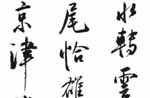 水轉雲
尾恰雄
京津